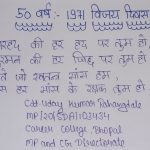 50 वर्ष :- 1971 विजय दिवस
सरहद की हर हद पर तुम हो
की हर चिह्न, पर तुम हो
जो स्वतन्त्र सांस हम
हर सांस के रक्षक तुम हो
Cdt Uday Kumar Rahangdale
MP/20/SDA/103434
Career College Bhopal
MP and CG Directorate